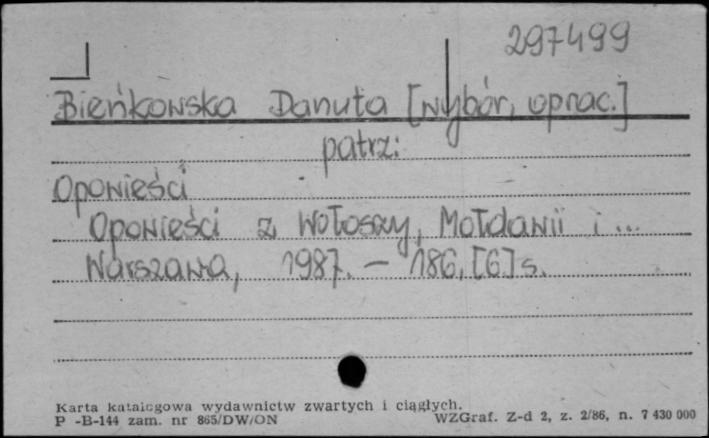 297499
Bieńkowska Danuta [wybór, oprac.]
patrz:
Opowieści
Opowieści z Wołoszy, Mołdawii i...
Warszawa, 1987. - 186, [6] s.
Karta katalogowa wydawnictw zwartych i ciągłych.
P -B-144 zam. nr 865/DW/ON WZGraf. Z-d 2, z. 2/86, n. 7 430 000